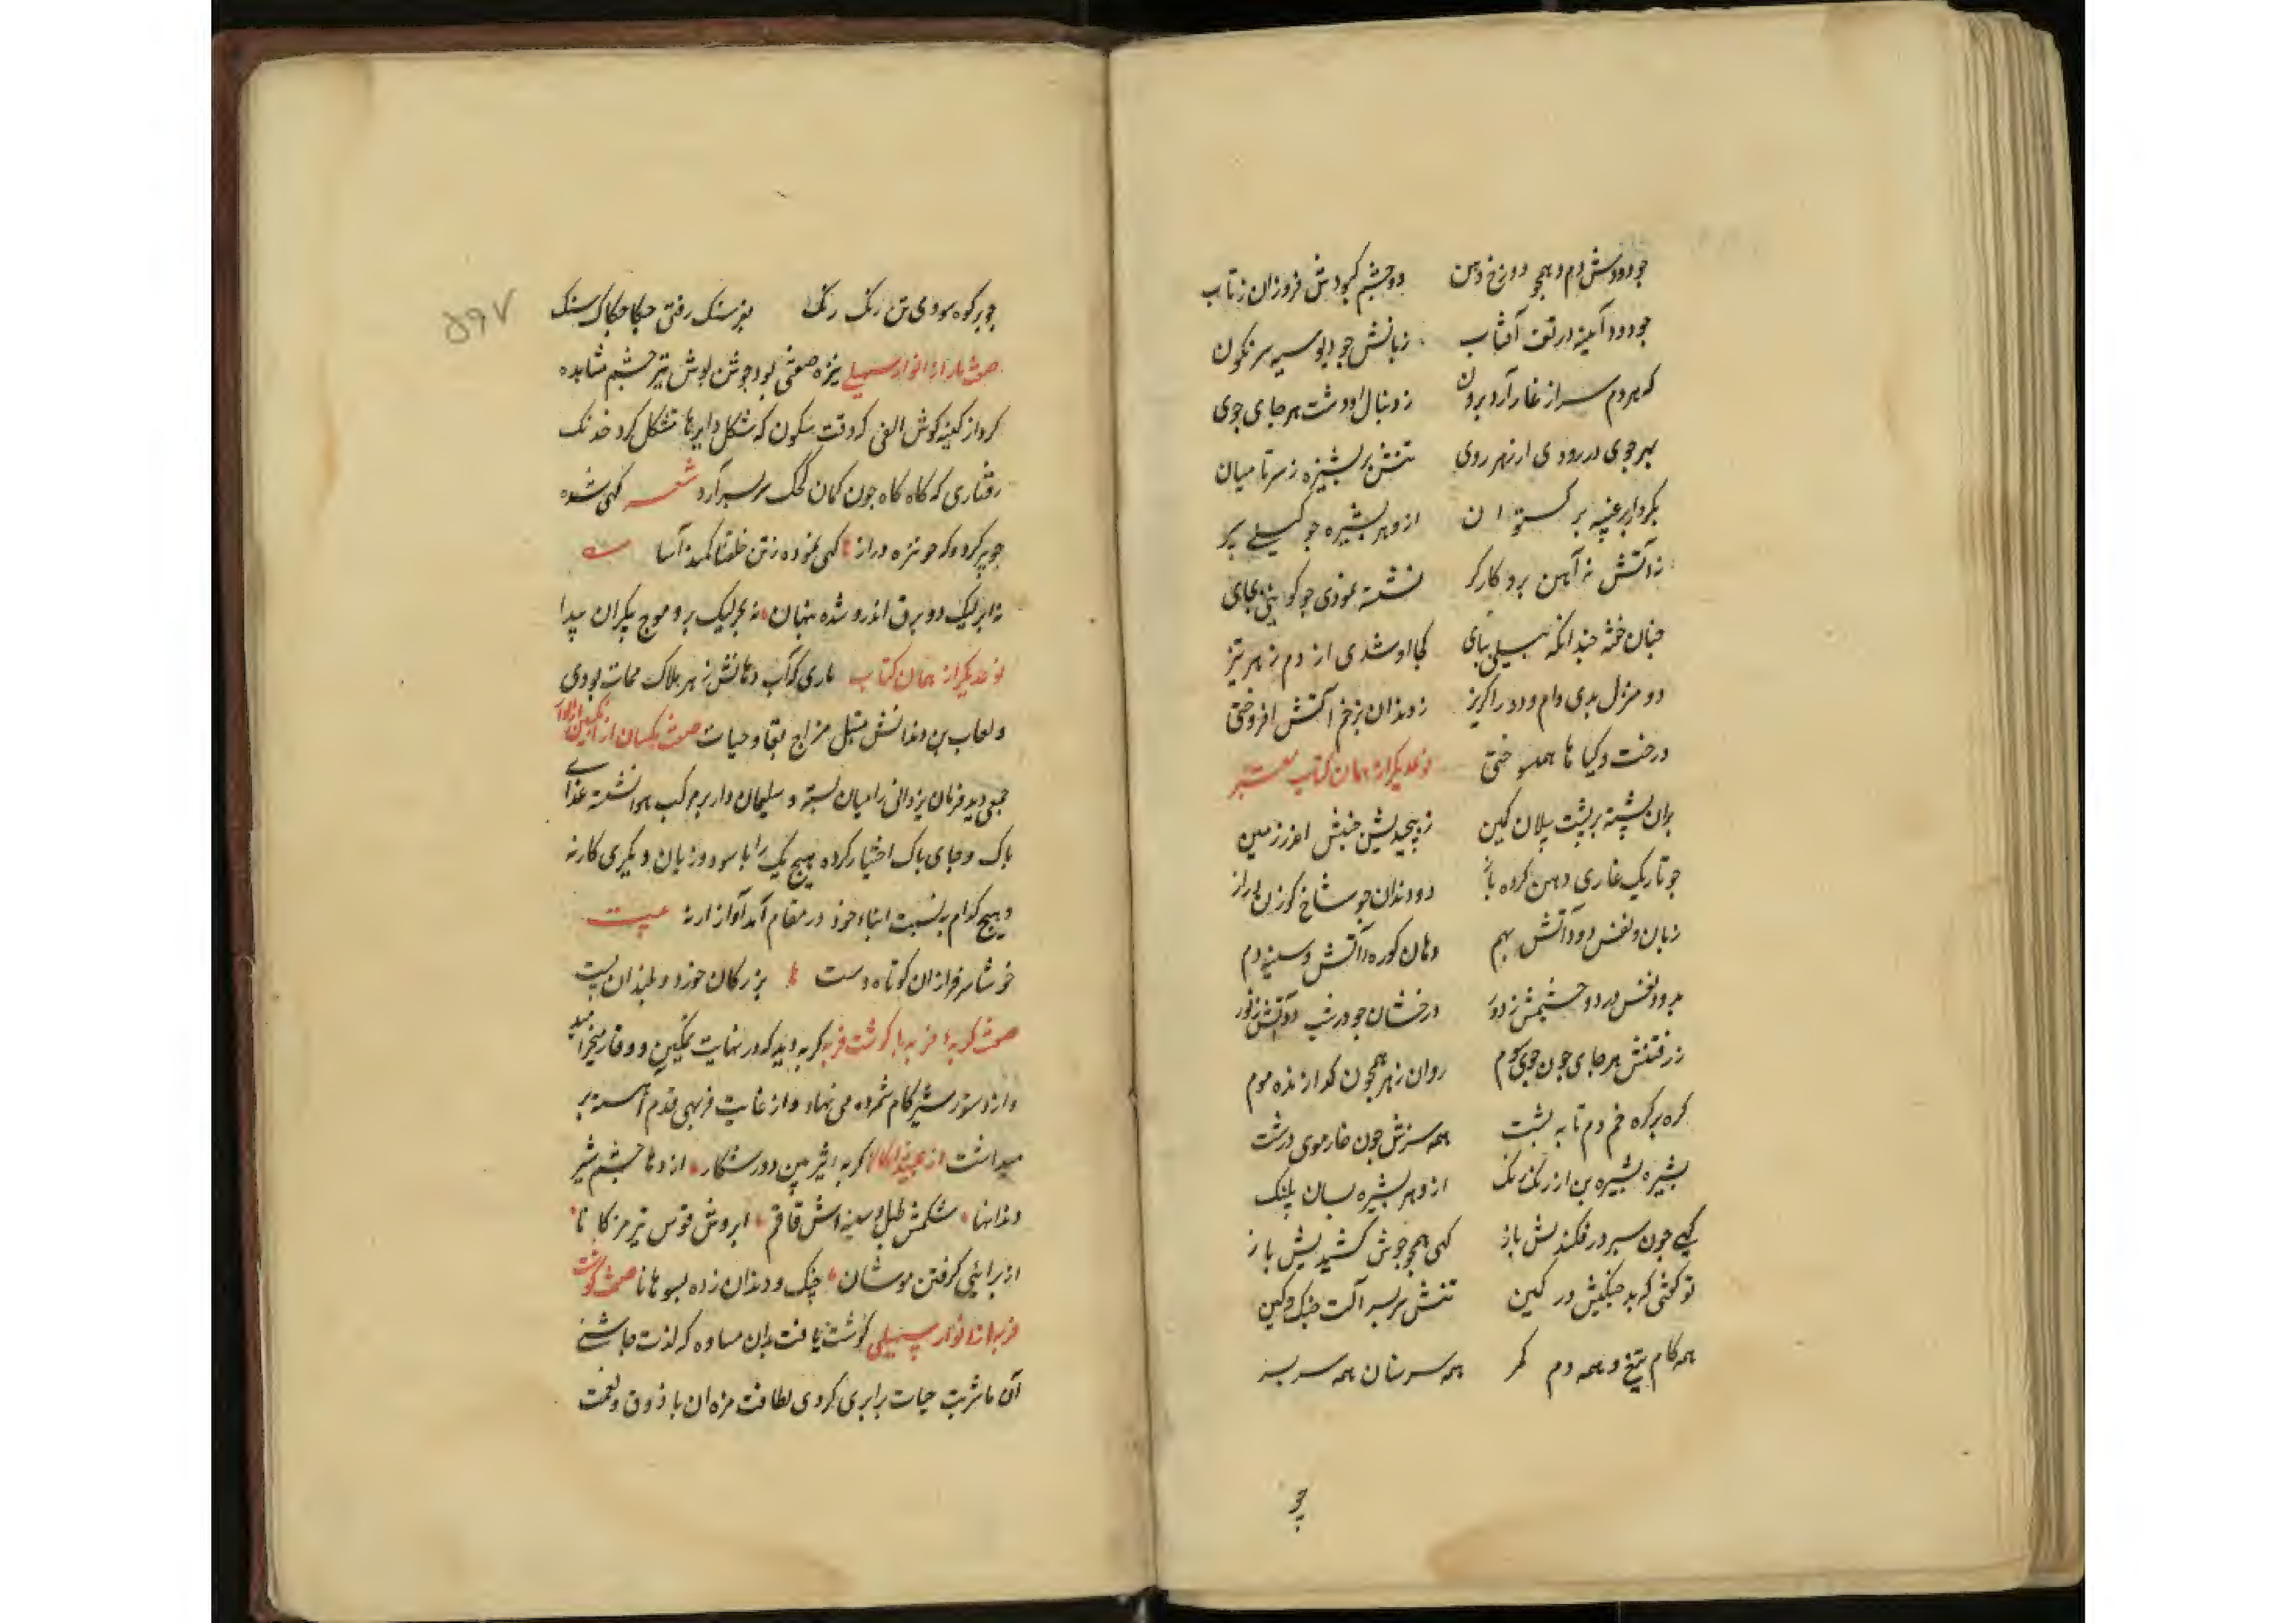 جو دودش دم و همچو دوزخ دهن دو چشم کبودش فروزان ز تاب
جو دود آینه در تف آفتاب زبانش جو دیو سیه سرنکون
که هر دم سر از غار آرد برون ز دنبال او دشت هر جای جوی
بهر جوی در رودی از زهر روی تنش پر بشیزه ز سر تا میان
بکردار بر غیبه بر کستوان ازو هر بشیزه جو کیلی سپر
نه آتش نه آهن برو کارکر نشسته نمودی جو کوهی بجای
جنان خفته جندانکه بیلی بپای کجا او شدی از دم زهر تیز
دو منزل بدی دام و دد را کریز ز دندان بزخم آتش افروختی
درخت و کیا ها همه سوختی نوعدیکر از همان کتاب شعر
بران بشته بر بشت بیلان کین ز پیچیدنش جنبش اندر زمین
جو تاریک غاری دهن کرده باز دو دندان جو شاخ کوزن دراز
زبان و نفس دود و آتش بهم دهان کوره و آتش و سینه دم
بدود نفس در دو چشمش ز دور درخشان جو در شب دو آتش ز نور
ز رفتنش هر جای جون جوی کوم روان زهر همچون کدازنده موم
کره بر کره خم دم تا به بشت همه سرش جون خار موی درشت
بشیزه بشیزه تن از رنک رنک ازو هر بشیزه بسان پلنک
کهی جون سپر در فکندیش باز کهی همچو جوشن کشیدیش باز
تو کفتی که بد جنکیش در کمین تنش سر بسر آلت جنک و کین
همه کام تیغ و همه دم کمر همه سر سنان همه سر سپر
چو
۵۹۷
جو بر کوه سودی تن رنک رنک بفرسنک رفتی جکاجاک سنک
صفت مار از انوار سهیلی نیزه صفتی بود جوشن پوش تیز جشم مشاهده
کرد از کینه کوش الفی که وقت سکون که شکل دایرها متشکل کردد خدنک
رفتاری که کاه کاه جون کمان کجک بر سر آرد شعر کهی شده
جو سپر کرد و که جو نیزه دراز کهی نموده ز تن حلقها کمند آسا
نه ابر لیک دو برق اندرو شده پنهان نه بحر لیک برو موج بیکران پیدا
نوعدیکر از همان کتاب ماری که آب دهانش زهر هلاک ممات بودی
و لعاب بن دندانش مبتل مزاج بقا و حیات صفت مکسان از نکین
جمعی دید فرمان یزدانی را میان بسته و سلیمان وار بر مرکب هوا نشسته غذای
باک و جای باک اختیار کرده هیچ یک را با سود و زیان دیکری کار نه
و هیچ کدام بر نسبت ابناء خود در مقام آمد آواز ار نه بیت
خوشا سرفرازان کوتاه دست بزرکان خورد و بلندان پست
صفت کربه فربه با کوشت فربه کربه دید که در نهایت تمکین و وقار میخرامید
و از دستور شیر کام شمرده می نهاد و از غایت فربهی قدم آهسته بر
میداشت از عبید زاکانی کربه شیر بین دور شکار ازدها جشم شیر
دندانها شکمش طبل و سینه اش قاقم ابروش قوس تیر مژکانا
از برای گرفتن موشان چنک و دندان زده بسوهانا صفت کوشت
فربه از انوار سهیلی کوشت یافت بدان مساوه که لذت چاشنی
آن با شربت حیات برابری کردی لطافت مزه ان با ذوق و نعمت